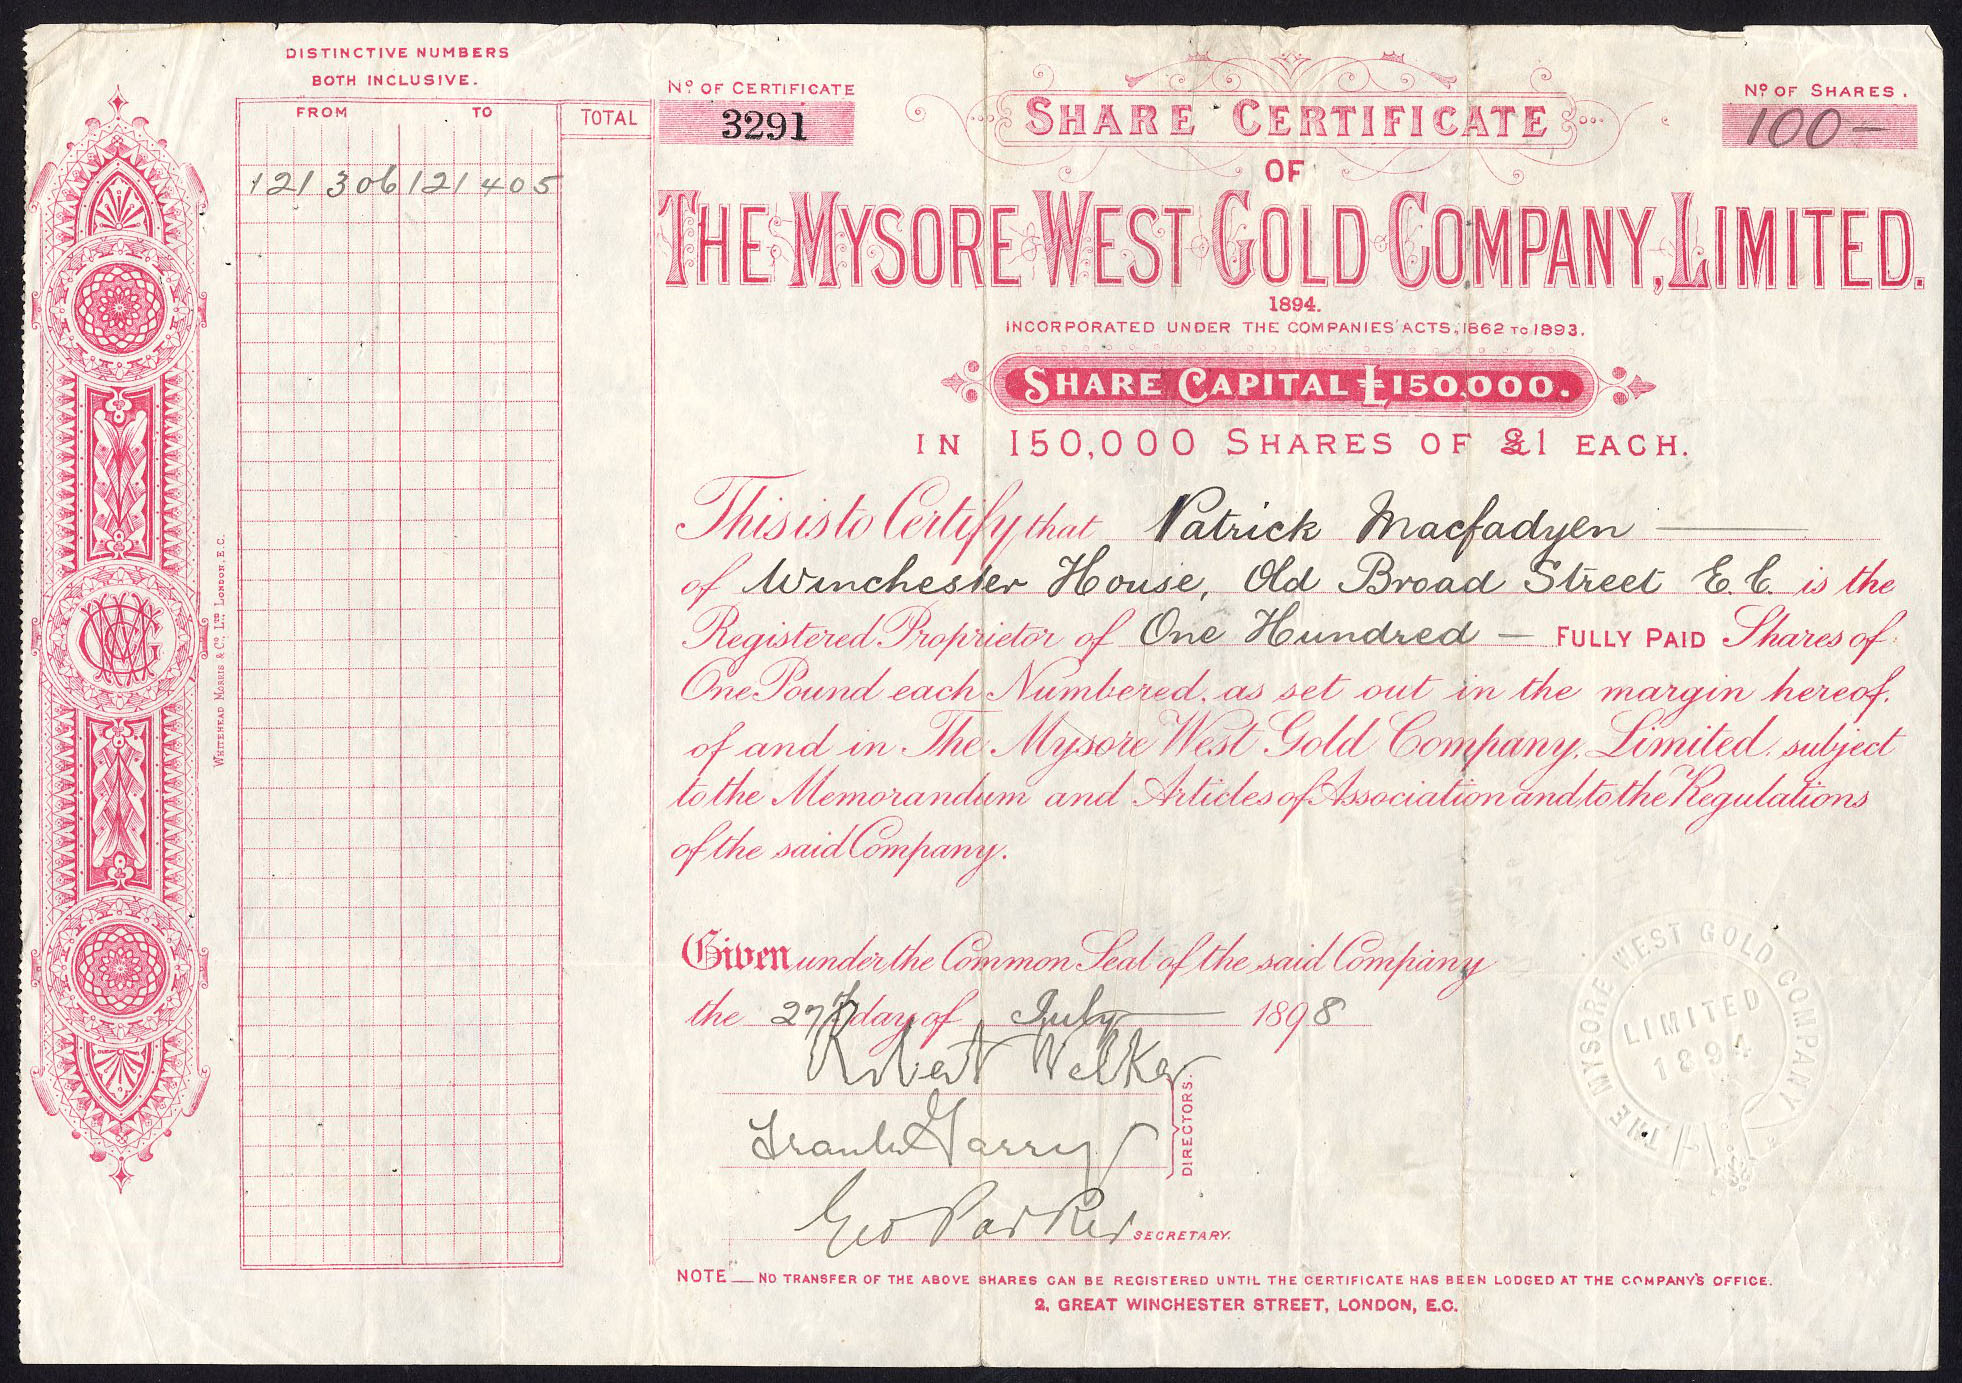 DISTINCTIVE NUMBERS
BOTH INCLUSIVE.
FROM TO TOTAL
121306 121405
WHITEHEAD MORRIS & Co. LTD LONDON, E.C.
No OF CERTIFICATE
3291
SHARE CERTIFICATE
No OF SHARES.
100-
OF
THE MYSORE WEST GOLD COMPANY, LIMITED.
1894.
INCORPORATED UNDER THE COMPANIES' ACTS, 1862 TO 1893.
SHARE CAPITAL £150,000.
IN 150,000 SHARES OF £1 EACH.
This is to Certify that Patrick Macfadyen
of Winchester House, Old Broad Street E.C. is the
Registered Proprietor of One Hundred — FULLY PAID Shares of
One Pound each Numbered, as set out in the margin hereof,
of and in The Mysore West Gold Company, Limited, subject
to the Memorandum and Articles of Association and to the Regulations
of the said Company.
Given under the Common Seal of the said Company
the 27th day of July 1898
Robert Walker
Frank Garry
DIRECTORS.
Geo Parker
SECRETARY.
THE MYSORE WEST GOLD COMPANY
LIMITED
1894
NOTE — NO TRANSFER OF THE ABOVE SHARES CAN BE REGISTERED UNTIL THE CERTIFICATE HAS BEEN LODGED AT THE COMPANY'S OFFICE.
2, GREAT WINCHESTER STREET, LONDON, E.C.